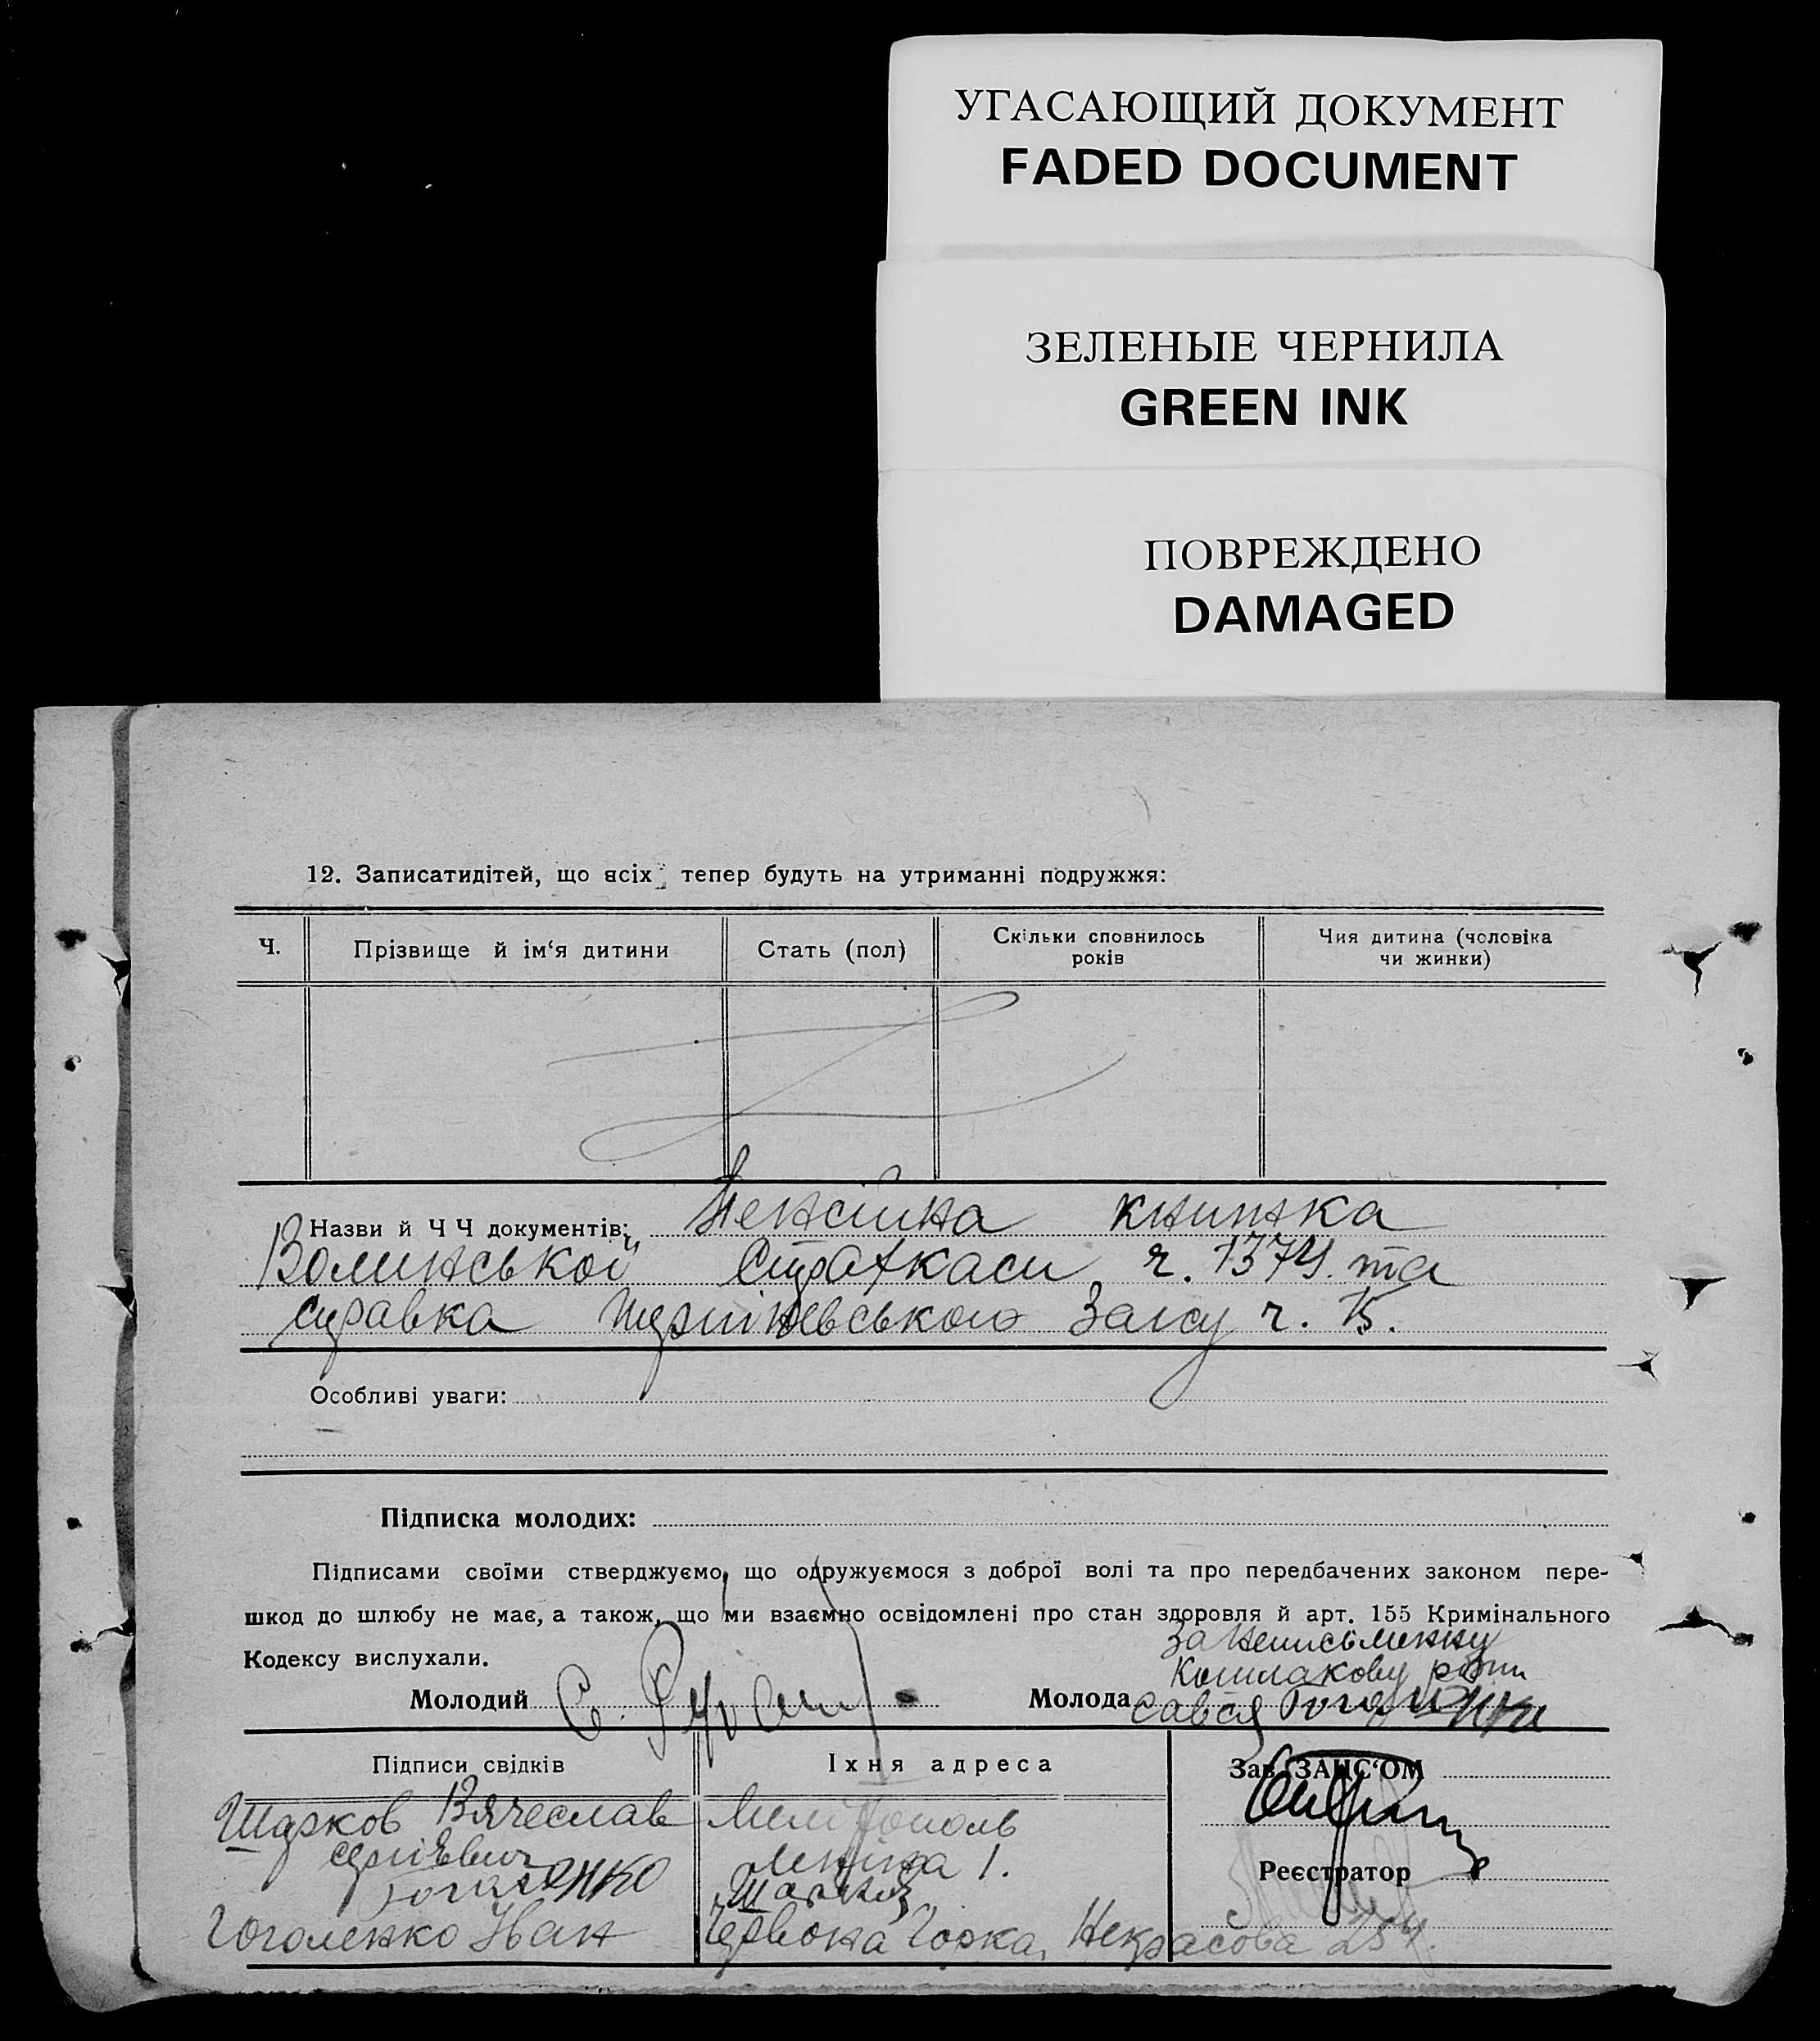 УГАСАЮЩИЙ ДОКУМЕНТ
FADED DOCUMENT
ЗЕЛЕНЫЕ ЧЕРНИЛА
GREEN INK
ПОВРЕЖДЕНО
DAMAGED
12. Записатидітей, що всіх тепер будуть на утриманні подружжя:
Ч.
Прізвище й ім‘я дитини
Стать (пол)
Скільки сповнилось
років
Чия дитина (чоловіка
чи жинки)
Назви й Ч Ч документів: Пенсійна книжка
Волинської Страхкаси ч. 1374. та
справка Загсу ч.
Особливі уваги:
Підписка молодих:
Підписами своїми стверджуємо, що одружуємося з доброї волі та про передбачених законом пере-
шкод до шлюбу не має, а також, що ми взаємно освідомлені про стан здоровля й арт. 155 Кримінального
Кодексу вислухали.
За неписьменну
Молодий С.
Молода
Підписи свідків
Їхня адреса
Зав. ЗАГС‘ОМ
Шарков Вячеслав
Мелітополь
Сергіевич
Леніна 1.
Реєстратор
Гоголенко Іван
Червона Горка, Некрасова